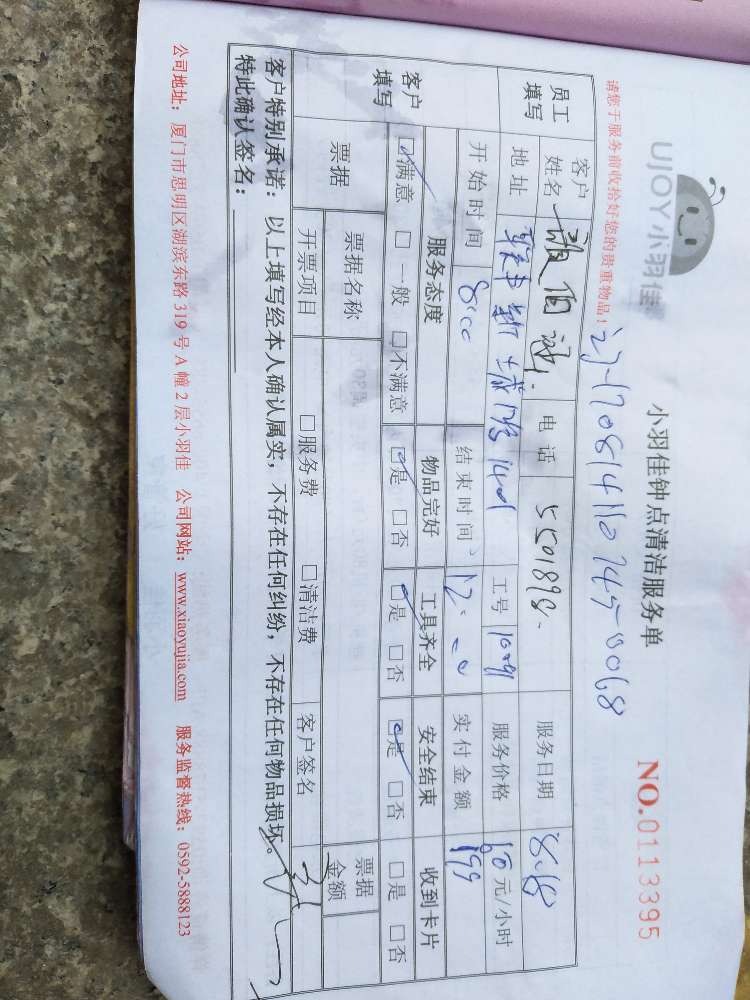 UJOY小羽佳
小羽佳钟点清洁服务单
NO.0113395
请您于服务前收拾好您的贵重物品！
员工填写 客户姓名 电话 服务日期 8.18
地址 工号 服务价格 元/小时
开始时间 8:00 结束时间 12:00 实付金额 199
客户填写 服务态度 物品完好 工具齐全 安全结束 收到卡片
☑满意 □一般 □不满意 ☑是 □否 ☑是 □否 ☑是 □否 □是 □否
票据 票据名称 票据金额
开票项目 □服务费 □清洁费 客户签名
客户特别承诺：以上填写经本人确认属实，不存在任何纠纷，不存在任何物品损坏。
特此确认签名：
公司地址：厦门市思明区湖滨东路 319 号 A 幢 2 层小羽佳 公司网站：www.xiaoyujia.com 服务监督热线：0592-5888123